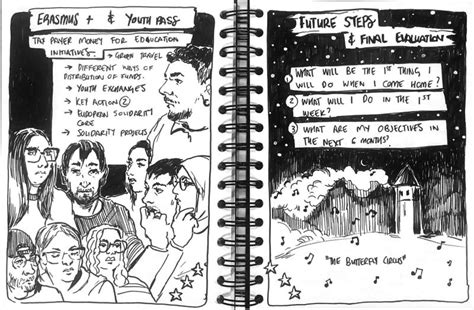 ERASMUS + & YOUTH PASS
TAX PAYER MONEY FOR EDUCATION
INITIATIVES → GROUP TRAVEL
→ DIFFERENT WAYS OF
DISTRIBUTION OF FUNDS.
→ YOUTH EXCHANGES
→ KEY ACTION ②
→ EUROPEAN SOLIDARITY
CORE
→ SOLIDARITY PROJECTS
FUTURE STEPS
& FINAL EVALUATION
① WHAT WILL BE THE 1ST THING I
WILL DO WHEN I COME HOME?
② WHAT WILL I DO IN THE 1ST
WEEK?
③ WHAT ARE MY OBJECTIVES IN
THE NEXT 6 MONTHS?
"THE BUTTERFLY CIRCUS"